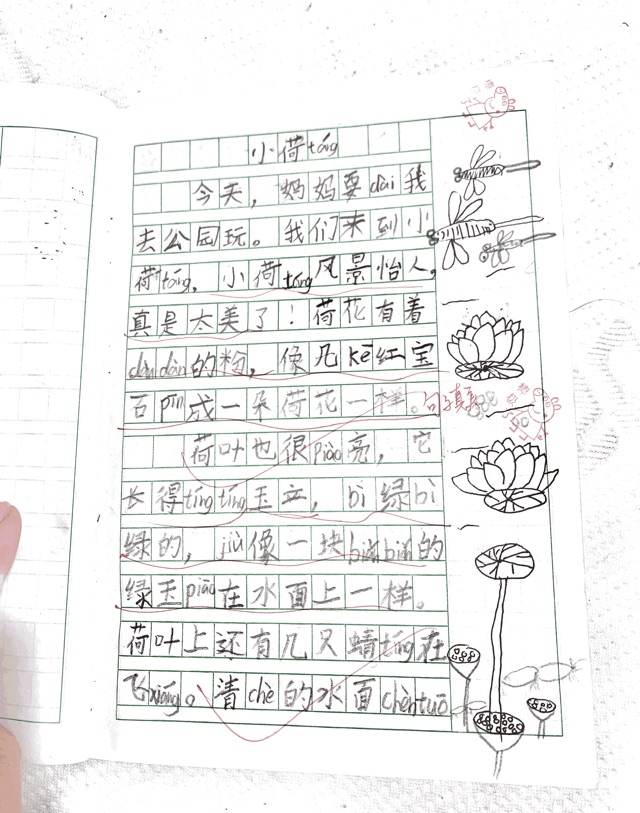 小荷táng
今天，妈妈要dài我
去公园玩。我们来到小
荷táng，小荷táng风景怡人，
真是太美了！荷花有着
dàn dàn的粉，像几kē红宝
石pīn成一朵荷花一样。句子真美
荷叶也很piào亮，它
长得tíng tíng玉立，bì绿bì
绿的，jiù像一块biǎn biǎn的
绿玉piāo在水面上一样。
荷叶上还有几只蜻tíng在
飞xiáng。清chè的水面chèn tuō